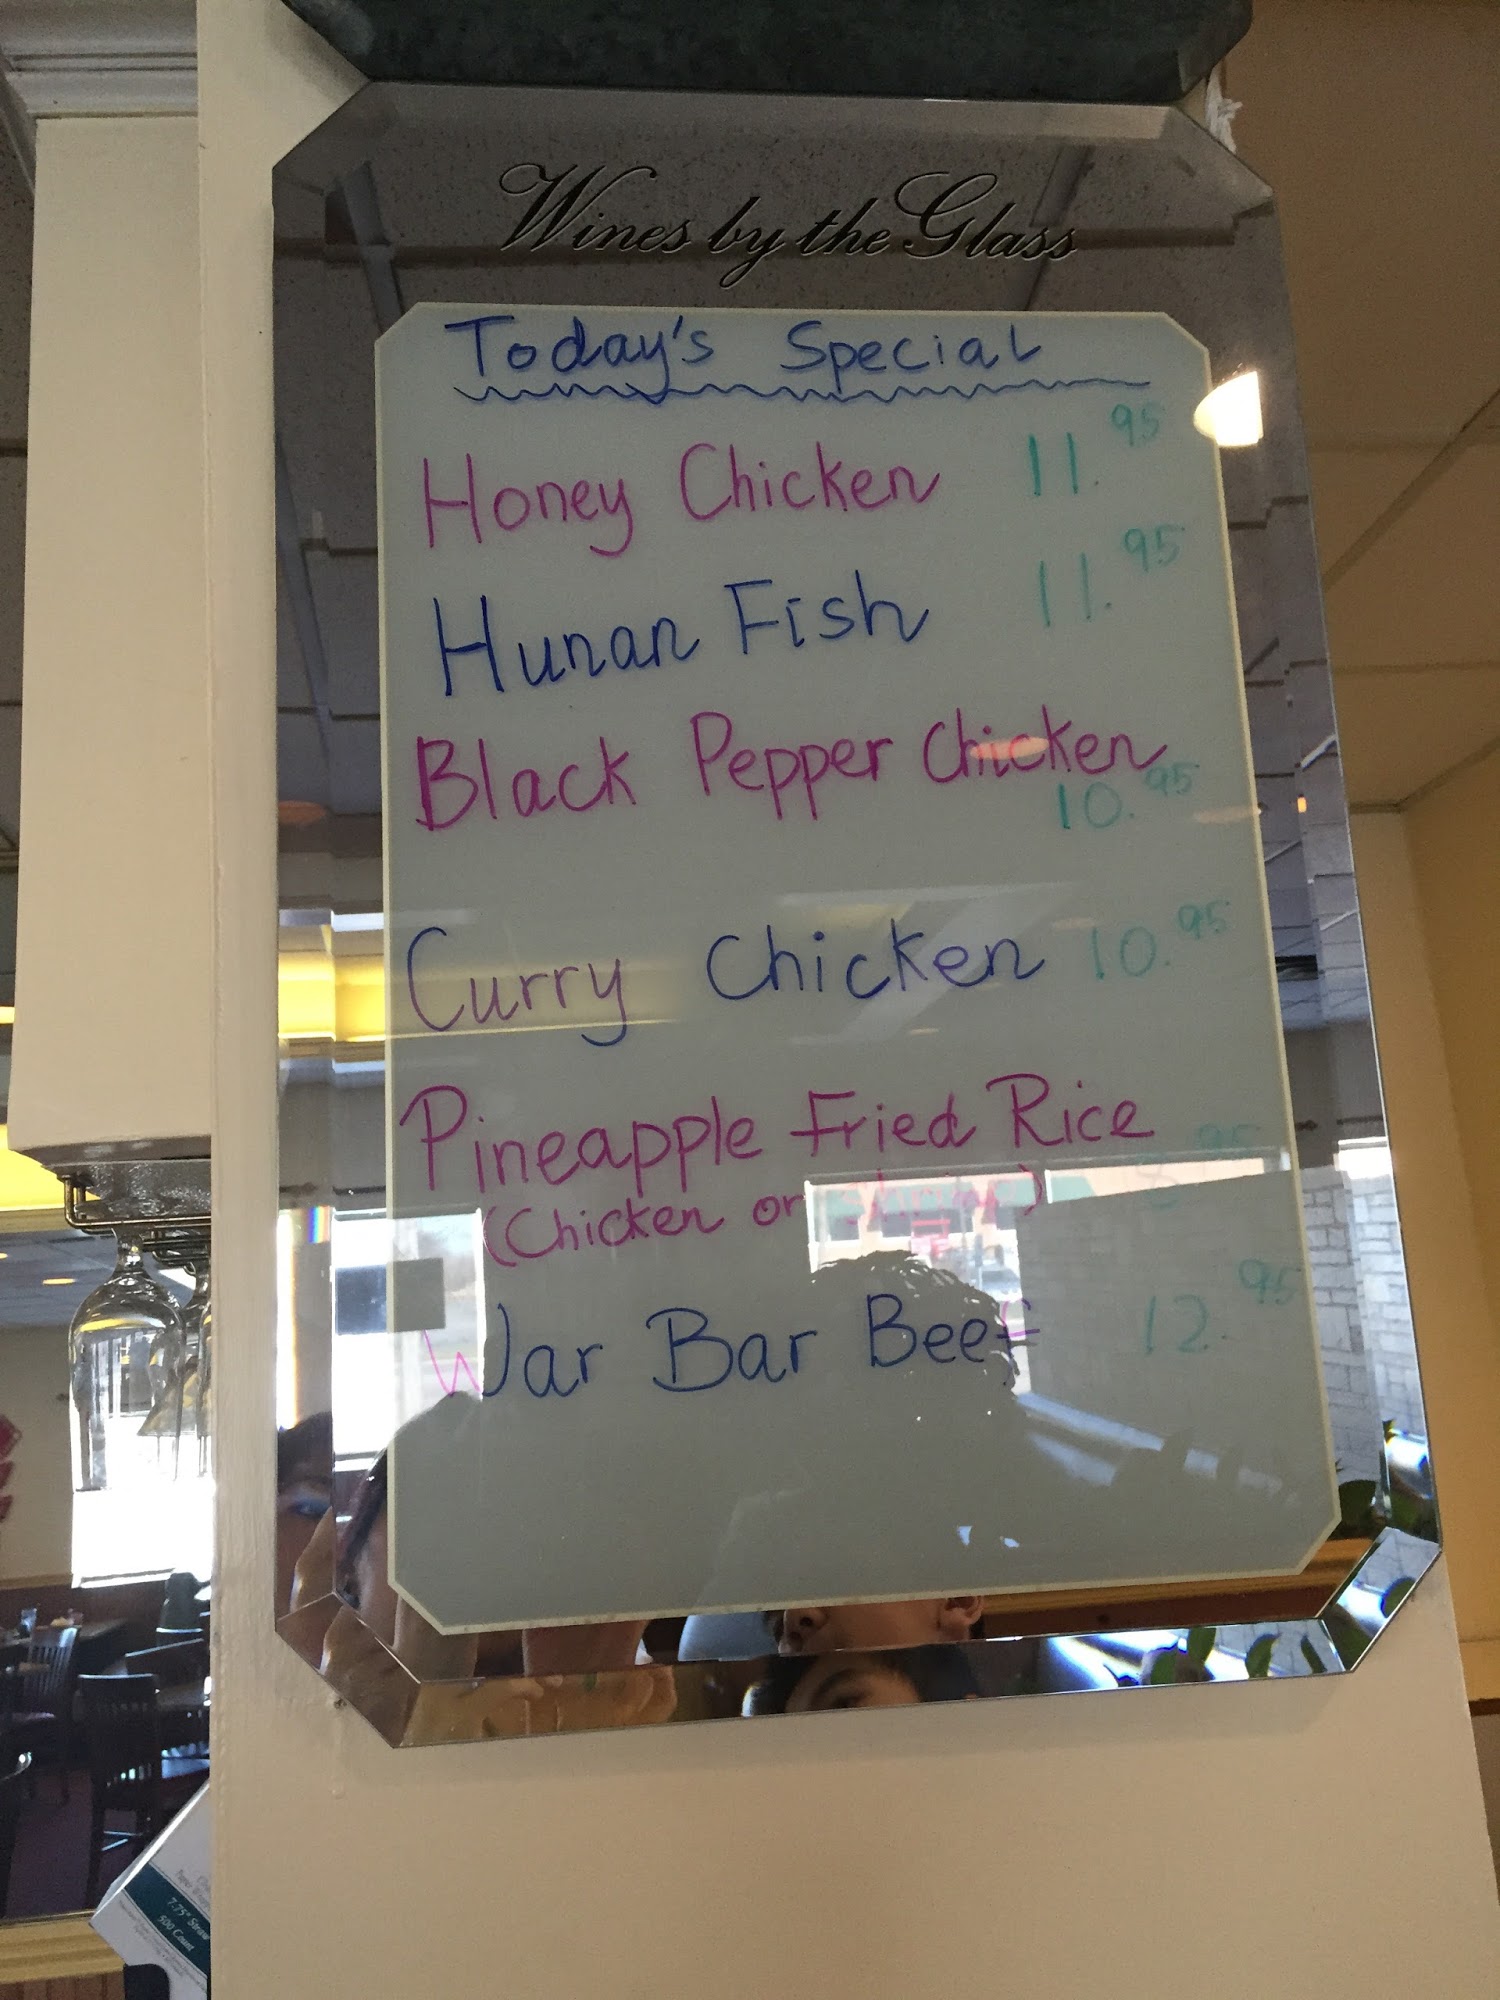 Wines by the Glass
Today's Special
Honey Chicken 11.95
Hunan Fish 11.95
Black Pepper Chicken
10.95
Curry Chicken 10.95
Pineapple Fried Rice
(Chicken or Shrimp)
War Bar Beef 12.95
7.75" Straw
500 Count